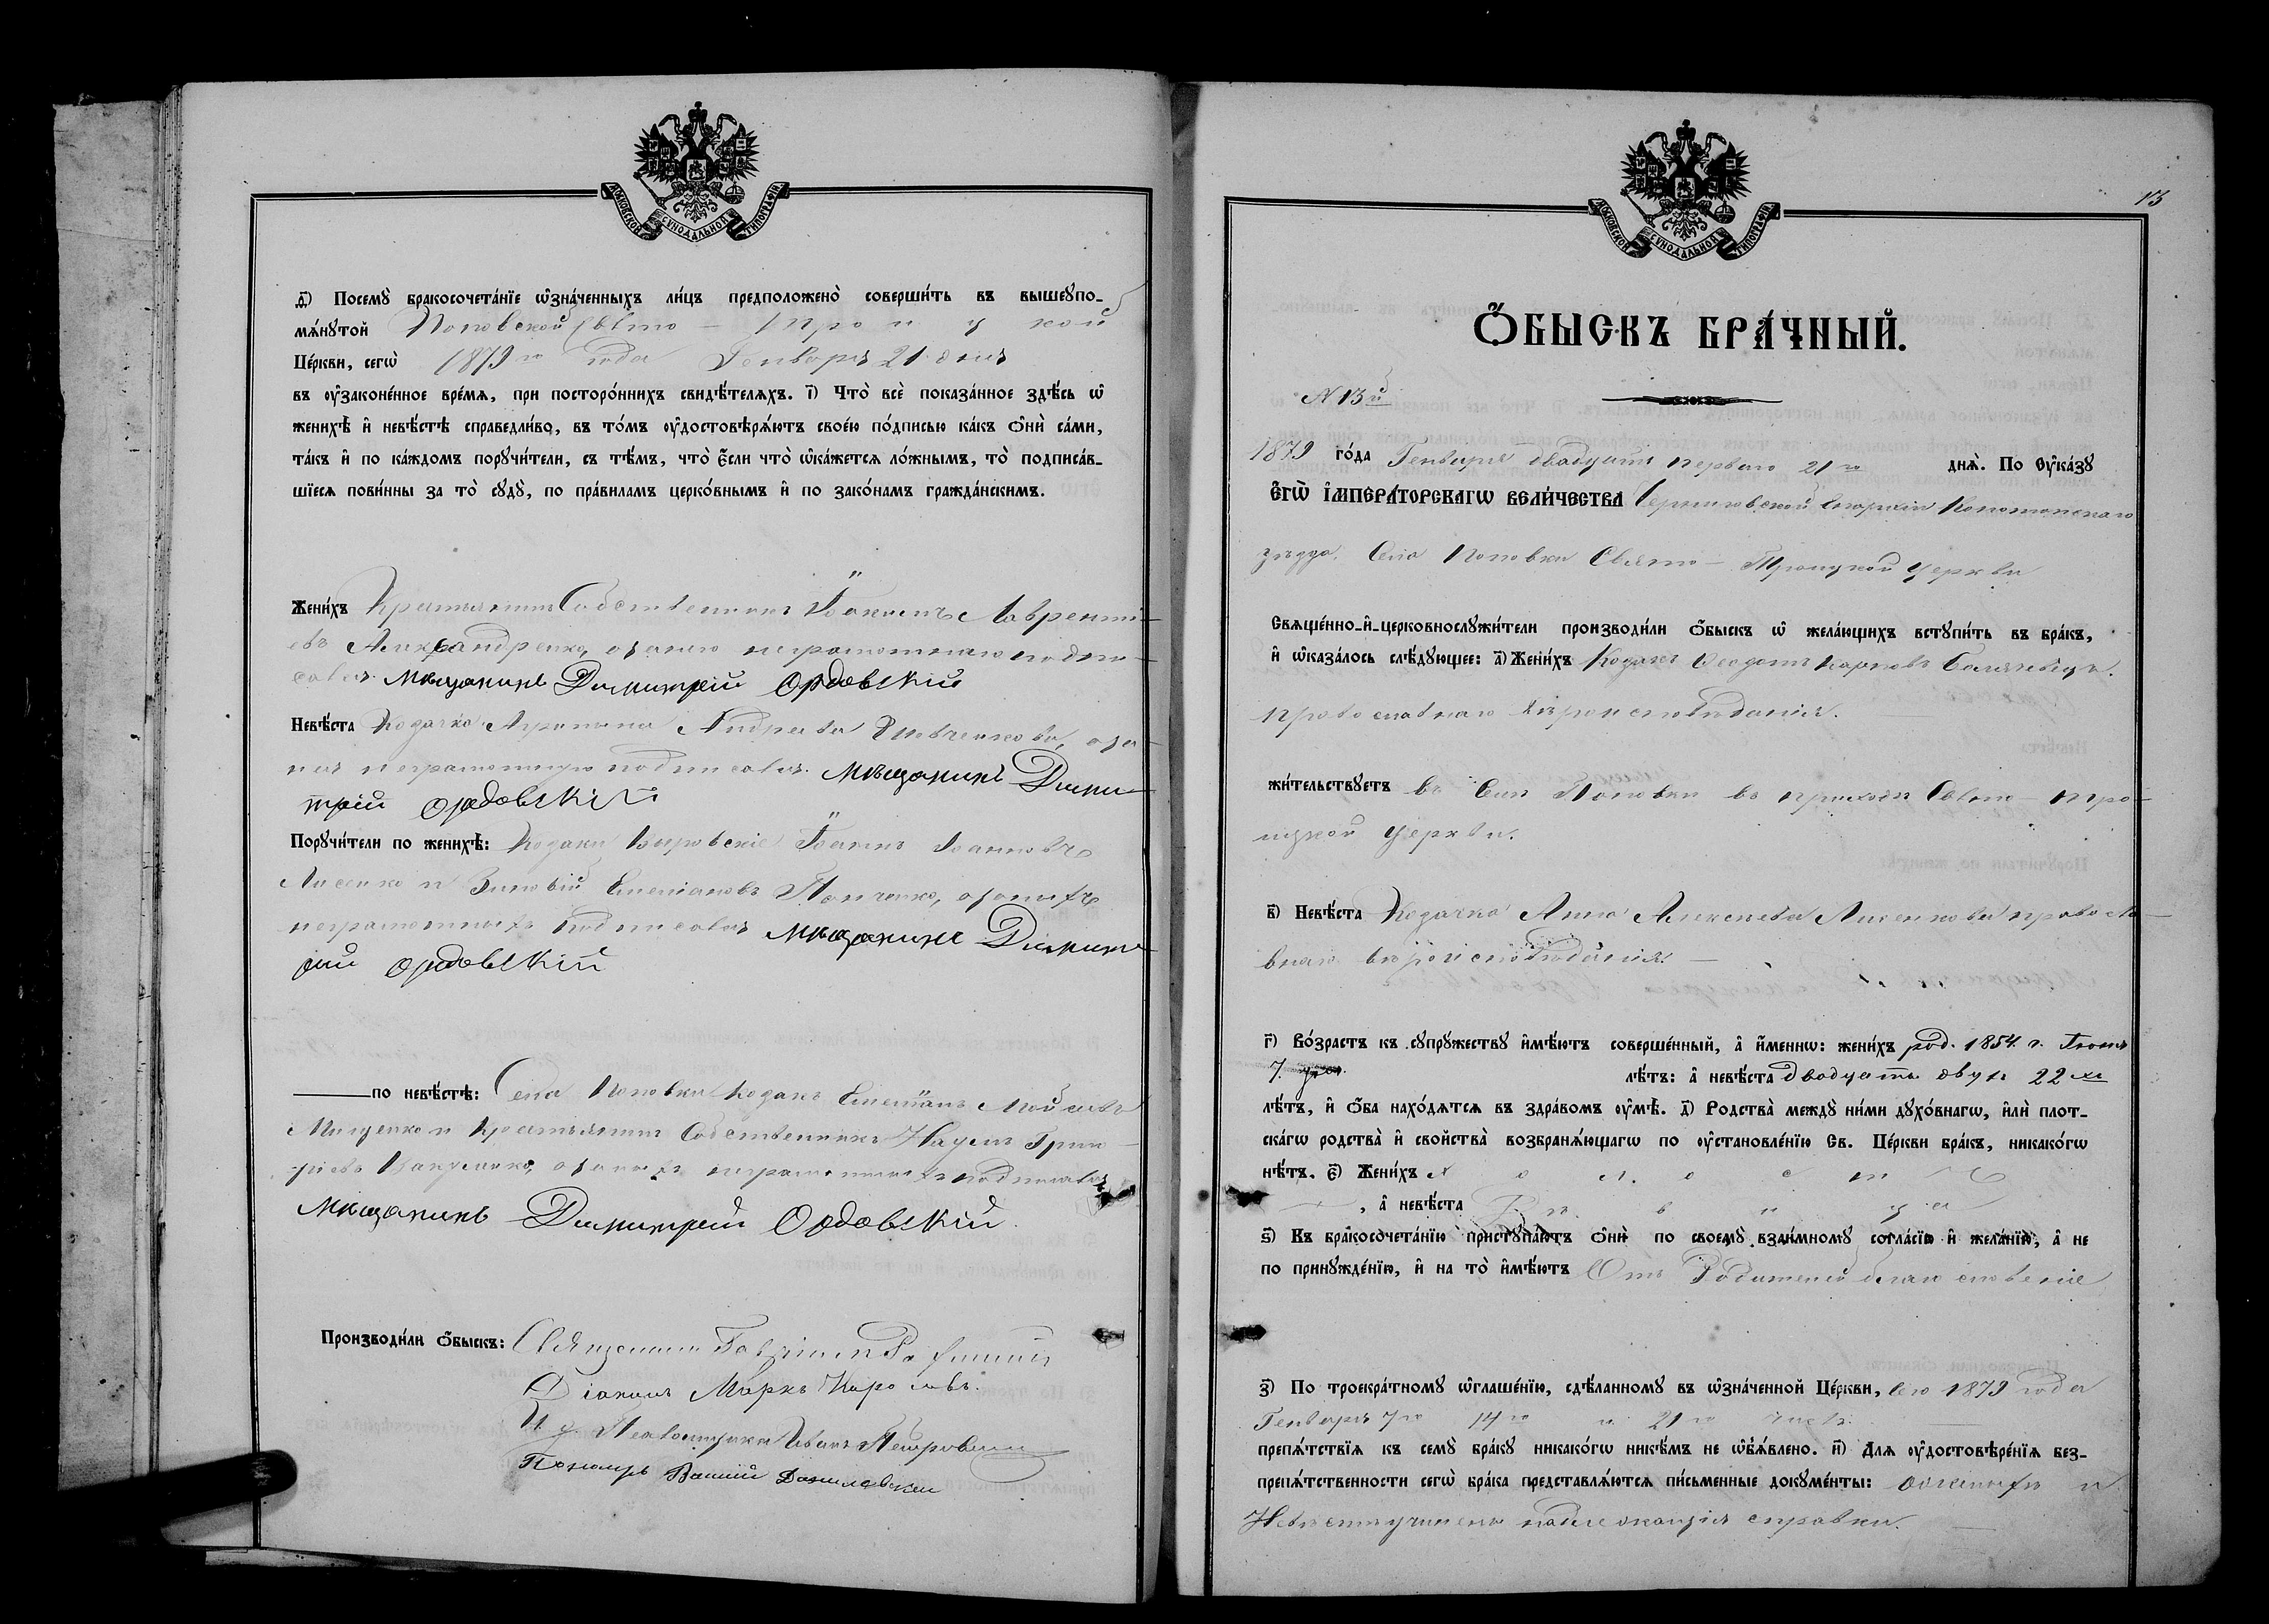 МОСКОВСКОЙ СУНОДАЛЬНОЙ ТИПОГРАФІИ
д҃) Посемꙋ̀ бракосочета́нїе ѡ҆зна́ченныхъ ли́цъ предположено̀ соверши́ть въ вышеꙋпо-
мѧ́нꙋтой Поповской Свято – Троицкой
Це́ркви, сегѡ̀ 1879 го года Генваря 21 дня
въ ᲂу҆законе́нное вре́мѧ, при посторо́ннихъ свидѣ́телѧхъ. і҃) Что̀ всѐ показа́нное здѣ́сь ѡ҆
женихѣ̀ и҆ невѣ́стѣ справедли́во, въ то́мъ ᲂу҆достовѣрѧ́ютъ свое́ю по́дписью ка́къ ѻ҆нѝ са́ми,
та́къ и҆ по ка́ждомъ порꙋчи́тели, съ тѣ́мъ, что̀ є҆́сли что̀ ѡ҆ка́жетсѧ ло́жнымъ, то̀ подписа́в-
шїесѧ пови́нны за то̀ сꙋдꙋ̀, по пра́виламъ церко́внымъ и҆ по зако́намъ гражда́нскимъ.
Жени́хъ Крестьянинъ Собственникъ Іоакимъ Лавренті-
евъ Александренко, а за него неграмотнаго подпи-
сался Мѣщанинъ Димитрій Ордовскій
Невѣ́ста Козачка Агрипина Андреева, а за
нея неграмотную подписался Мѣщанинъ Дими-
трій Ордовскій
Порꙋчи́тели по женихѣ̀: Козаки Іоаннъ Іоанновъ
Лисенко и Зиновій Емеліановъ Панченко, а за нихъ
неграмотныхъ подписался Мѣщанинъ Димит-
рій Ордовскій
по невѣ́стѣ: Села Поповки Козакъ Емеліанъ
Мищенко и Крестьянинъ Собственникъ Наумъ Григо-
рьевъ, а за нихъ неграмотныхъ подписался
Мѣщанинъ Димитрій Ордовскій.
Производи́ли ѻ҆́быскъ: Священникъ Гавріилъ
Діаконъ Маркъ
И. д. Псаломщика Иванъ Петровскій
Пономарь Данилевскій
13
МОСКОВСКОЙ СУНОДАЛЬНОЙ ТИПОГРАФІИ
Ѻ҆́БЫСКЪ БРА́ЧНЫЙ.
№ 13й
1879 го́да Генваря двадцать перваго 21 го днѧ̀. По Оу҆ка́зꙋ
Є҆ГѠ̀ І҆МПЕРА́ТОРСКАГѠ ВЕЛИ́ЧЕСТВА Черниговской Епархіи Конотопскаго
уѣзда Села Поповки Свято – Троицкой Церкви
Свѧще́нно-и҆-церковнослꙋжи́тели производи́ли ѻ҆́быскъ ѡ҆ жела́ющихъ встꙋпи́ть въ бра́къ,
и҆ ѡ҆каза́лось слѣ́дꙋющее: а҃) Жени́хъ Козакъ Ѳеодотъ Карповъ
православнаго вѣроисповѣданія.
жи́тельствꙋетъ въ Селѣ Поповки въ приходѣ Свято – Тро-
ицкой Церкви.
в҃) Невѣ́ста Козачка Анна Алексѣева Лисенкова правосла-
внаго вѣроисповѣданія.
г҃) Во́зрастъ къ сꙋпрꙋ́жествꙋ и҆мѣ́ютъ соверше́нный, а҆ и҆́меннѡ: жени́хъ род. 1854. г. Іюня
7. лѣ́тъ: а҆ невѣ́ста двадцать двухъ 22 хъ
лѣ́тъ, и҆ ѻ҆́ба нахо́дѧтсѧ въ здра́вомъ ᲂу҆мѣ̀. д҃) Родства̀ междꙋ̀ ни́ми дꙋхо́внагѡ, и҆лѝ плот-
ска́гѡ родства̀ и҆ сво́йства возбранѧ́ющагѡ по ᲂу҆становле́нїю Св. Це́ркви бра́къ, никако́гѡ
нѣ́тъ. є҃) Жени́хъ Холостъ
, а҆ невѣ́ста Дѣвица
ѕ҃) Къ бракосочета́нїю пристꙋпа́ютъ ѻ҆нѝ по своемꙋ̀ взаи́мномꙋ согла́сїю и҆ жела́нїю, а҆ не
по принꙋжде́нїю, и҆ на то̀ и҆мѣ́ютъ Отъ Родителей благословеніе
з҃) По троекра́тномꙋ ѡ҆глаше́нїю, сдѣ́ланномꙋ въ ѡ҆зна́ченной Це́ркви, сего 1879 года
Генваря 7 го 14 го и 21 го чиселъ.
препѧ́тствїѧ къ семꙋ̀ бра́кꙋ никако́гѡ никѣ́мъ не ѡ҆б̾ѧ́влено. и҃) Длѧ ᲂу҆достовѣре́нїѧ без-
препѧ́тственности сегѡ̀ бра́ка представлѧ́ютсѧ пи́сьменные докꙋме́нты: о Женихѣ и
Невѣстѣ учинены надлежащія справки.